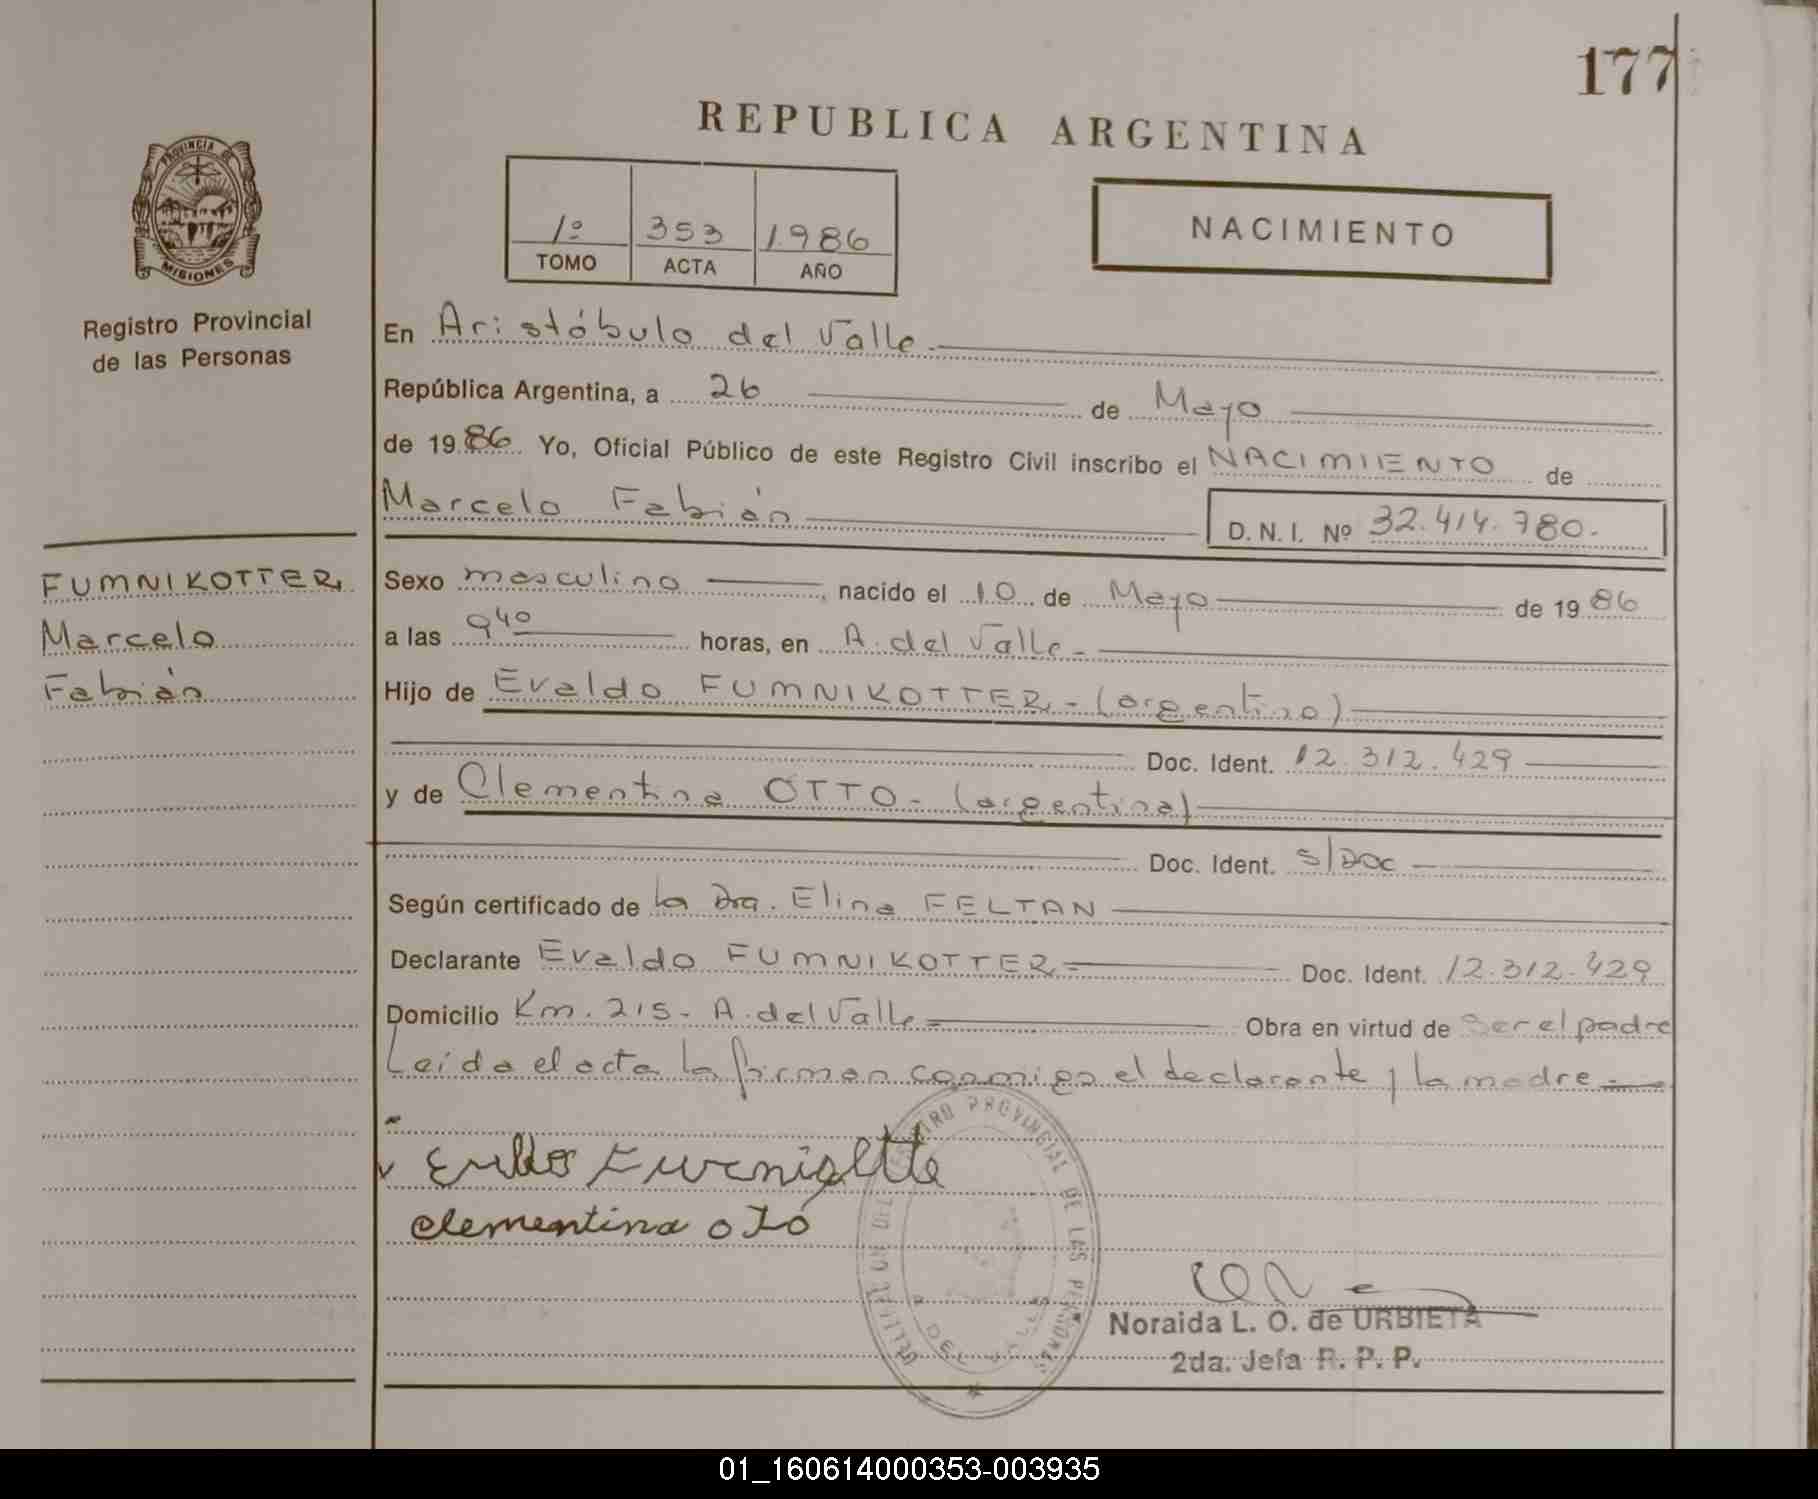 177
REPUBLICA ARGENTINA
PROVINCIA DE
MISIONES
Registro Provincial
de las Personas
1º 353 1986
TOMO ACTA AÑO
NACIMIENTO
En Aristóbulo del Valle.
República Argentina, a 26 de Mayo
de 1986 Yo, Oficial Público de este Registro Civil inscribo el NACIMIENTO de
Marcelo Fabián
D.N.I. Nº 32.414.780.-
FUMNIKOTTER,
Marcelo
Fabián
Sexo masculino, nacido el 10 de Mayo de 1986
a las 9 40 horas, en A. del Valle -
Hijo de Evaldo FUMNIKOTTER - (argentino)
Doc. Ident. 12.312.429
y de Clementina OTTO - (argentina)
Doc. Ident. S/Doc
Según certificado de la Dra. Elina FELTAN
Declarante Evaldo FUMNIKOTTER Doc. Ident. 12.312.429
Domicilio Km. 215 - A. del Valle Obra en virtud de Ser el padre
Leída el acta la firman conmigo el declarante y la madre
clementina oto
REGISTRO PROVINCIAL DE LAS PERSONAS
DEL VALLE
Noraida L. O. de URBIETA
2da. Jefa R. P. P.
01_160614000353-003935